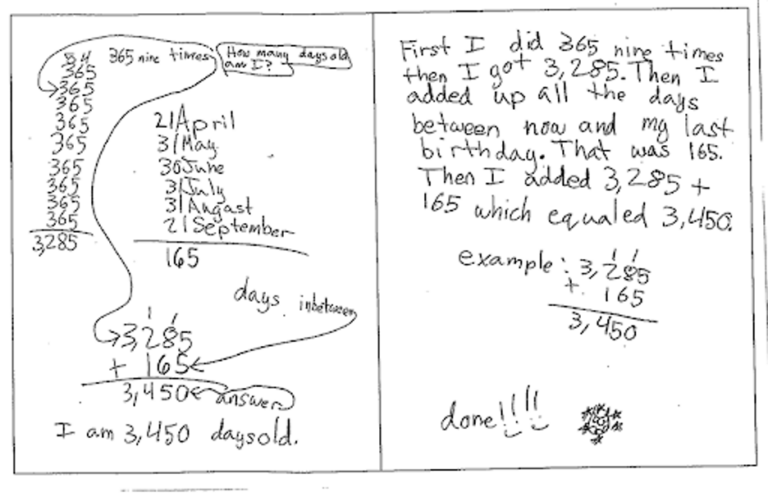 365 nine times
How many days old
am I?
34
365
365
365
365
365
365
365
365
365
3,285
21 April
31 May
30 June
31 July
31 Augast
21 September
165
days inbetween
1 1
3,285
+ 165
3,450 answer
I am 3,450 days old.
First I did 365 nine times
then I got 3,285. Then I
added up all the days
between now and my last
birthday. That was 165.
Then I added 3,285 +
165 which equaled 3,450.
1 1
example: 3,285
+ 165
3,450
done!!!!